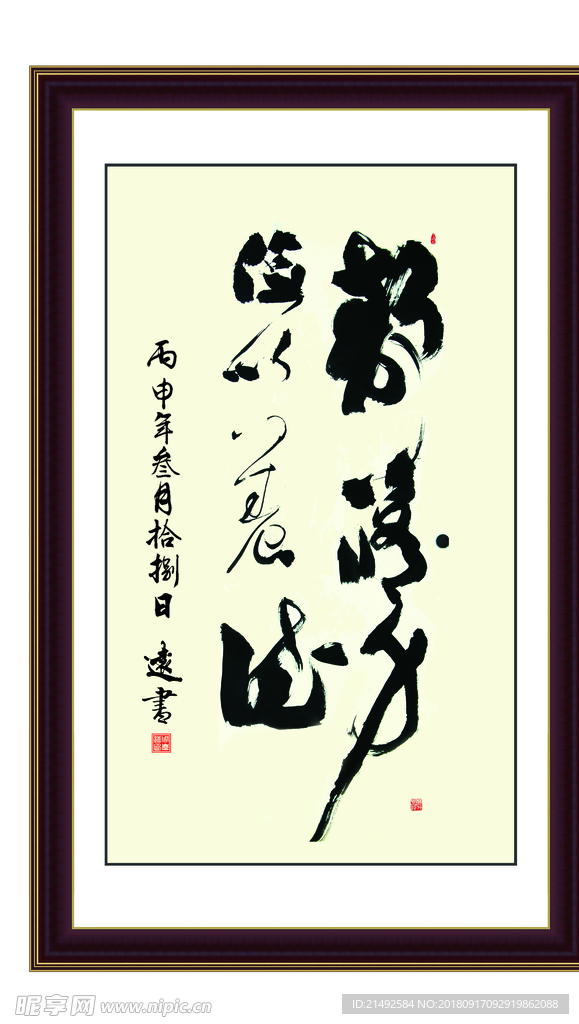 静以修身
俭以养德
丙申年叁月拾捌日 遠書
昵享网 www.nipic.cn
ID:21492584 NO:20180917092919862088